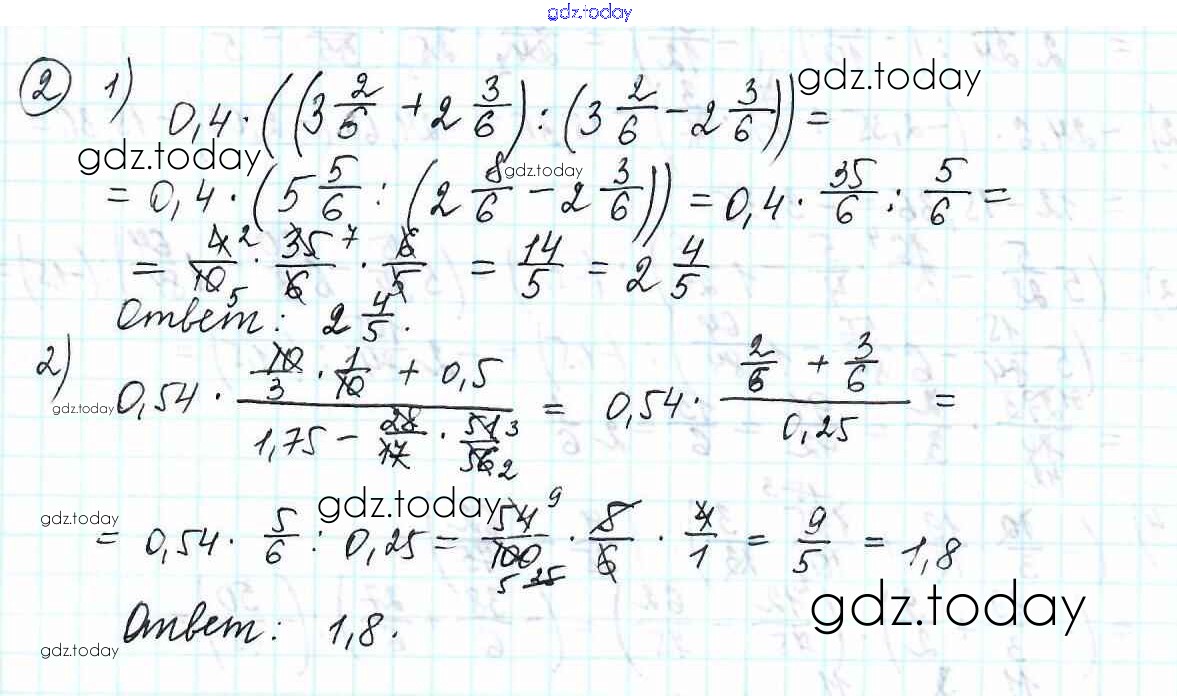 gdz.today
② 1)
0,4 · ((3 2/6 + 2 3/6) : (3 2/6 − 2 3/6)) = gdz.today
gdz.today gdz.today
= 0,4 · (5 5/6 : (2 8/6 − 2 3/6)) = 0,4 · 35/6 : 5/6 =
= 4 2/10 5 · 35 7/6 · 6/5 = 14/5 = 2 4/5
Ответ: 2 4/5.
2)
gdz.today 0,54 · (10/3 · 1/10 + 0,5)/(1,75 − 28/17 · 51 3/56 2) = 0,54 · (2/6 + 3/6)/0,25 =
gdz.today gdz.today
= 0,54 · 5/6 : 0,25 = 54 9/100 25 5 · 5/6 · 4/1 = 9/5 = 1,8
gdz.today
Ответ: 1,8.
gdz.today